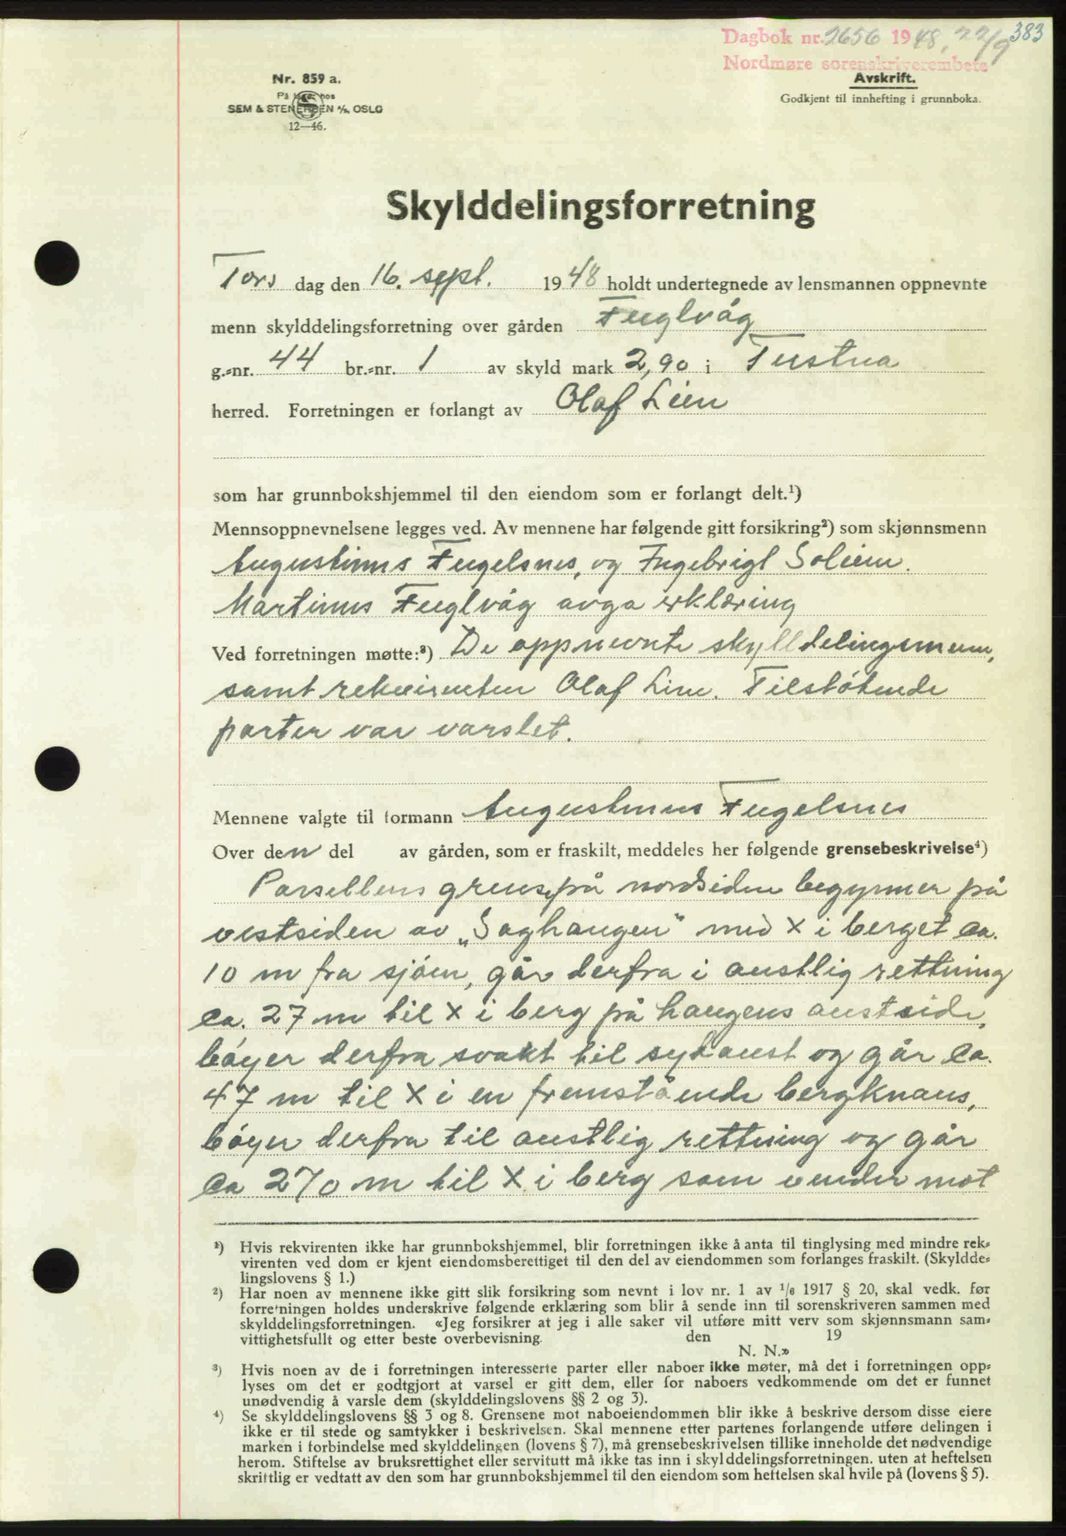 383
Dagbok nr. 2656 1948, 22/9
Nordmøre sorenskriverembete
Avskrift.
Godkjent til innhefting i grunnboka.
Nr. 859 a.
På lager hos
SEM & STENERSEN A/S, OSLO
12—46.
Skylddelingsforretning
Tors dag den 16. sept. 1948 holdt undertegnede av lensmannen oppnevnte
menn skylddelingsforretning over gården Fuglvåg
g.-nr. 44 br.-nr. 1 av skyld mark 2,90 i Tustna
herred. Forretningen er forlangt av Olaf Lien
som har grunnbokshjemmel til den eiendom som er forlangt delt.¹)
Mennsoppnevnelsene legges ved. Av mennene har følgende gitt forsikring²) som skjønnsmenn
Augustinus Fugelsnes, og Ingebrigt Soleim.
Martinus Fuglvåg avga erklæring
Ved forretningen møtte:³) De oppnevnte skylldelingsmenn,
samt rekvirenten Olaf Lien. Tilstøtende
parter var varslet.
Mennene valgte til formann Augustinus Fugelsnes
Over den del av gården, som er fraskilt, meddeles her følgende grensebeskrivelse⁴)
Parsellens grense på nordsiden begynner på
vestsiden av „Saghaugen" med X i berget ca.
10 m fra sjøen, går derfra i austlig rettning
ca. 27 m til X i berg på haugens austside,
bøyer derfra svakt til sydaust og går ca.
47 m til X i en fremstående bergknaus,
bøyer derfra til austlig rettning og går
ca 270 m til X i berg som vender mot
¹) Hvis rekvirenten ikke har grunnbokshjemmel, blir forretningen ikke å anta til tinglysing med mindre rek-
virenten ved dom er kjent eiendomsberettiget til den del av eiendommen som forlanges fraskilt. (Skyldde-
lingslovens § 1.)
²) Har noen av mennene ikke gitt slik forsikring som nevnt i lov nr. 1 av ¹/₆ 1917 § 20, skal vedk. før
forretningen holdes underskrive følgende erklæring som blir å sende inn til sorenskriveren sammen med
skylddelingsforretningen. «Jeg forsikrer at jeg i alle saker vil utføre mitt verv som skjønnsmann sam-
vittighetsfullt og etter beste overbevisning. den 19
N. N.»
³) Hvis noen av de i forretningen interesserte parter eller naboer ikke møter, må det i forretningen opp-
lyses om det er godtgjort at varsel er gitt dem, eller for naboers vedkommende om det er funnet
unødvendig å varsle dem (skylddelingslovens §§ 2 og 3).
⁴) Se skylddelingslovens §§ 3 og 8. Grensene mot naboeiendommen blir ikke å beskrive dersom disse eiere
ikke er til stede og samtykker i beskrivelsen. Skal mennene etter partenes forlangende utføre delingen i
marken i forbindelse med skylddelingen (lovens § 7), må grensebeskrivelsen tillike inneholde det nødvendige
herom. Stiftelse av bruksrettighet eller servitutt må ikke tas inn i skylddelingsforretningen, uten at heftelsen
skriftlig er vedtatt av den som har grunnbokshjemmel til den eiendom som heftelsen skal hvile på (lovens § 5).